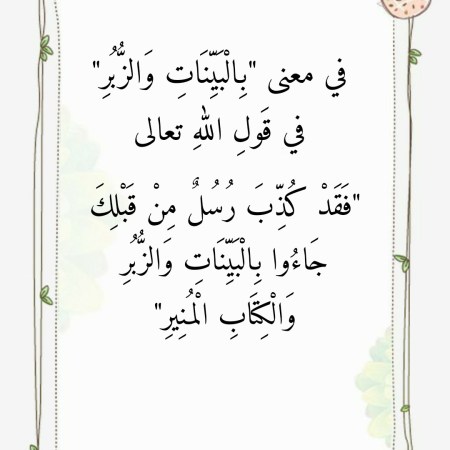 في معنى "بِالْبَيِّنَاتِ وَالزُّبُرِ"
في قَولِ اللهِ تعالى
"فَقَدْ كُذِّبَ رُسُلٌ مِنْ قَبْلِكَ
جَاءُوا بِالْبَيِّنَاتِ وَالزُّبُرِ
وَالْكِتَابِ الْمُنِيرِ"